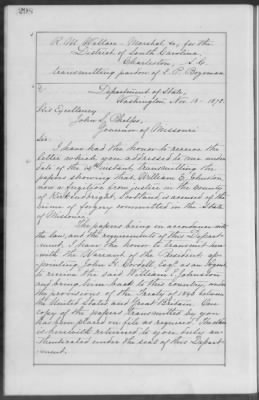 298
R. M. Wallace Marshal &c, for the
District of South Carolina,
Charleston, S.C.
transmitting pardon of L. P. Bozeman
Department of State,
Washington Nov. 18 - 1878.
His Excellency
John S. Phelps,
Governor of Missouri
Sir:
I have had the honor to receive the
letter which you addressed to me under
date of the instant, transmitting the
papers showing that William E. Johnston
now a fugitive from justice in the county
of Kirkcudbright, Scotland is accused of the
crime of forgery committed in the State
of Missouri.
The papers being in accordance with
the law, and the requirements of this Depart-
ment, I have the honor to transmit here-
with the Warrant of the President ap-
pointing John H. Cordell, Esq. as an Agent
to receive the said William E. Johnston
and bring him back to this country, under
the provisions of the Treaty of 1842 between
the United States and Great Britain. One
copy of the papers transmitted by you
has been placed on file as required. The other
is herewith returned to you duly au-
thenticated under the seal of this Depart-
ment.